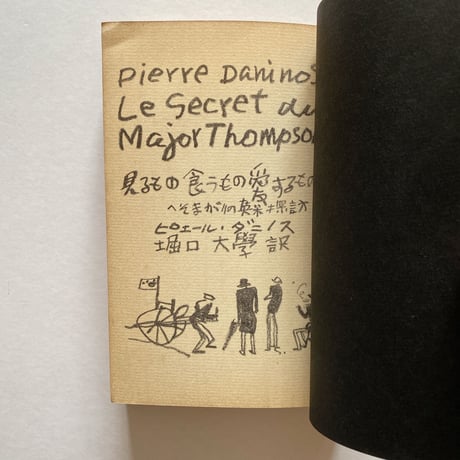 Pierre Daninos
Le Secret du
Major Thompson
見るもの食うもの愛するもの
へそまがりの英米探訪
ピエール・ダニノス
堀口大學 訳